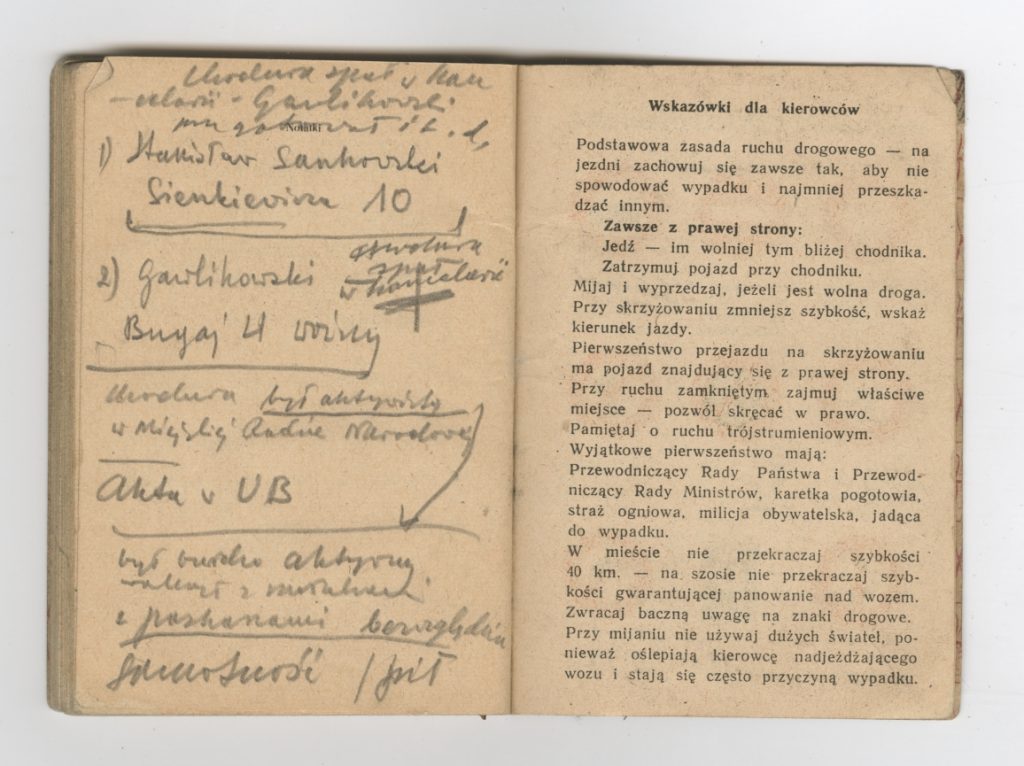 spał w kan
celarii - Gawlikowski
Notatki
i t. d.
1) Stanisław Sankowski
Sienkiewicza 10
2) Gawlikowski
spał
w kancelarii
Bugaj 4
był aktywistą
w Miejskiej Radzie Narodowej
Akta w UB
był bardzo aktywny
z
bezwzględnie
samotność / pił
Wskazówki dla kierowców
Podstawowa zasada ruchu drogowego — na
jezdni zachowuj się zawsze tak, aby nie
spowodować wypadku i najmniej przeszka-
dzać innym.
Zawsze z prawej strony:
Jedź — im wolniej tym bliżej chodnika.
Zatrzymuj pojazd przy chodniku.
Mijaj i wyprzedzaj, jeżeli jest wolna droga.
Przy skrzyżowaniu zmniejsz szybkość, wskaż
kierunek jazdy.
Pierwszeństwo przejazdu na skrzyżowaniu
ma pojazd znajdujący się z prawej strony.
Przy ruchu zamkniętym zajmuj właściwe
miejsce — pozwól skręcać w prawo.
Pamiętaj o ruchu trójstrumieniowym.
Wyjątkowe pierwszeństwo mają:
Przewodniczący Rady Państwa i Przewod-
niczący Rady Ministrów, karetka pogotowia,
straż ogniowa, milicja obywatelska, jadąca
do wypadku.
W mieście nie przekraczaj szybkości
40 km. — na szosie nie przekraczaj szyb-
kości gwarantującej panowanie nad wozem.
Zwracaj baczną uwagę na znaki drogowe.
Przy mijaniu nie używaj dużych świateł, po-
nieważ oślepiają kierowcę nadjeżdżającego
wozu i stają się często przyczyną wypadku.